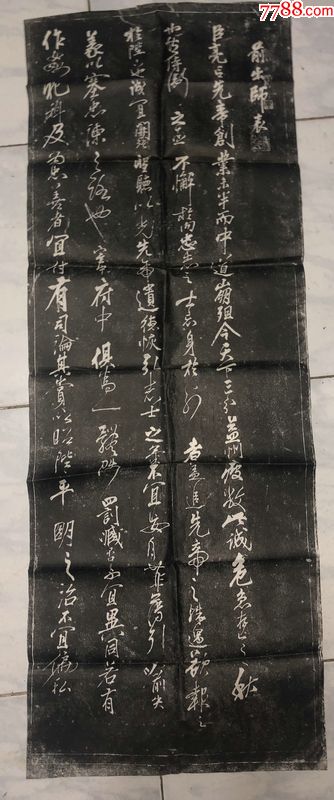 7788.com
前出師表
臣亮言先帝創業未半而中道崩殂今天下三分益州疲敝此誠危急存亡之秋
也然侍衛之臣不懈於內忠志之士忘身於外者蓋追先帝之殊遇欲報之
於陛下也誠宜開張聖聽以光先帝遺德恢弘志士之氣不宜妄自菲薄引喻失
義以塞忠諫之路也宮府中俱為一體陟罰臧否不宜異同若有
作姦犯科及為忠善者宜付有司論其賞以昭陛平明之治不宜偏私